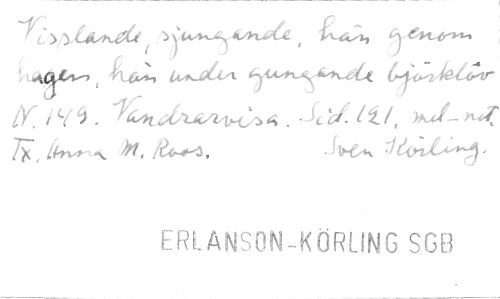 Visslande, sjungande, hän genom
hagen, hän under gungande björklöv
N. 149. Vandrarvisa. Sid. 121, mel-not.
Tx. Anna M. Roos. Sven Körling.
ERLANSON-KÖRLING SGB